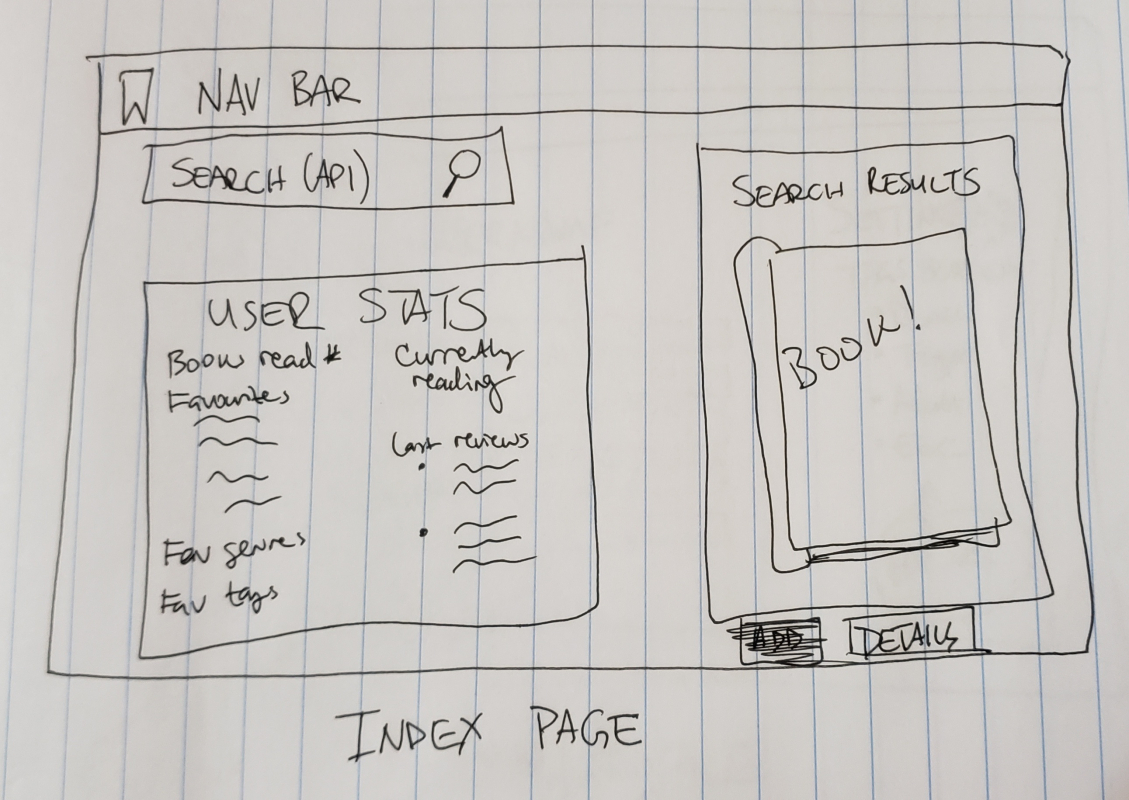 NAV BAR
SEARCH (API)
USER STATS
Book read #
Favourites
Fav genres
Fav tags
Currently
reading
Last reviews
SEARCH RESULTS
BOOK!
ADD
DETAILS
INDEX PAGE